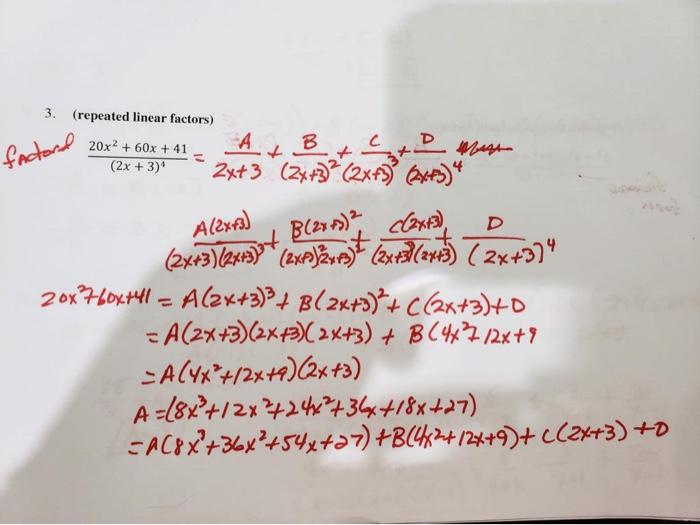 3. (repeated linear factors)
factored (20x² + 60x + 41)/(2x + 3)⁴ = A/(2x+3) + B/(2x+3)² + C/(2x+3)³ + D/(2x+3)⁴
A(2x+3)/((2x+3)(2x+3)³) + B(2x+3)²/((2x+3)²(2x+3)²) + C(2x+3)/((2x+3)³(2x+3)) + D/(2x+3)⁴
20x²+60x+41 = A(2x+3)³ + B(2x+3)² + C(2x+3)+D
= A(2x+3)(2x+3)(2x+3) + B(4x²+12x+9
= A(4x²+12x+9)(2x+3)
A =(8x³+12x²+24x²+36x+18x+27)
= A(8x³+36x²+54x+27)+B(4x²+12x+9)+C(2x+3)+D